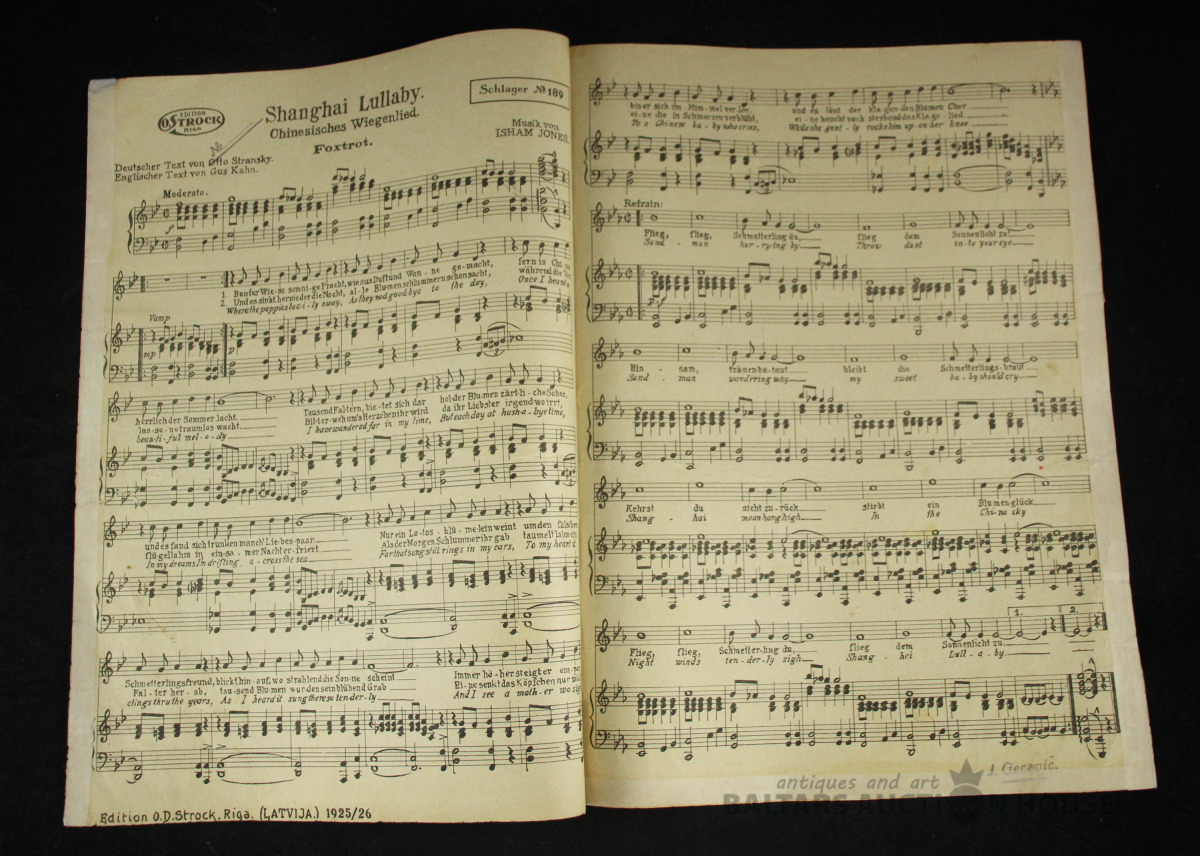 EDITION
O.STROCK
RIGA
Shanghai Lullaby.
Chinesisches Wiegenlied.
Foxtrot.
Schlager № 189
Musik von
ISHAM JONES.
Deutscher Text von Otto Stransky.
Englischer Text von Gus Kahn.
Moderato.
f
1. Bunter Wie-se sonni-ge Pracht, wie aus Duft und Won-ne ge-macht, fern in Chi-
Und es sinkt hernieder die Nacht, al-le Blu-men schlummern schon sacht, während die
2. Where the poppies la-zi-ly sway, As they nod good bye to the day, Once I heard a
Vamp
mp
p
herrlich der Sommer lacht. Tausend Faltern, bie-tet sich dar hol-der Blu-men zärt-li-che Schar,
las-se-ne traumlos wacht. Bit-ter weh um's Herzchen ihr wird da ihr Liebster irgend wo irrt,
beau-ti-ful mel-o-dy I have wandered far in my time, But each day at hush a-bye time,
und es fand sich trunken manch' Lie-bes-paar. Nur ein Lo-tos blü-me-lein weint um den falsche
flügellahm in ein-sa-mer Nacht er-friert Als der Morgen Schlummer ihr gab taumelt' lahm
In my dreams I'm drifting, a-cross the sea For that song still rings in my ears, To my heart it
Schmetterlingsfreund, blickt hin-auf, wo strahlend die Son-ne scheint Immer hö-her steigt er em-por
Fal-ter her-ab, tau-send Blu-men wur-den sein blühend Grab Ei-ne senkt das Köpfchen nur
clings thru the years, As I heard it sung there so ten-der-ly And I see a moth-er
Edition O.D.Strock, Riga, (LATVIJA.) 1925/26
bis er sich im Him-mel ver-lor, und es tönt der kla-gen-den Blumen Chor
ei-ne die in Schmerzen verblüht, ei-ne haucht noch sterbend das Kla-ge-lied
To a Chinese ba-by who cries, While she gent-ly rocks him up-on her knee
Refrain:
Flieg, flieg, Schmetterling du, flieg dem Sonnenlicht zu
Sand-man hur-rying by Throw dust in-to your eye
p-f
Ein-sam, tränen-be-taut bleibt die Schmetterlings-braut
Sand-man wondering why my sweet ba-by should cry
Kehrst du nicht zu-rück stirbt ein Blumenglück
Shang-hai moon hang high In the Chi-na sky
1. 2.
Flieg, flieg, Schmetter-ling du, flieg dem Sonnenlicht zu
Night winds ten-der-ly sigh Shang-hei Lull-a-by.
antiques and art
BALTARS AUCTION HOUSE